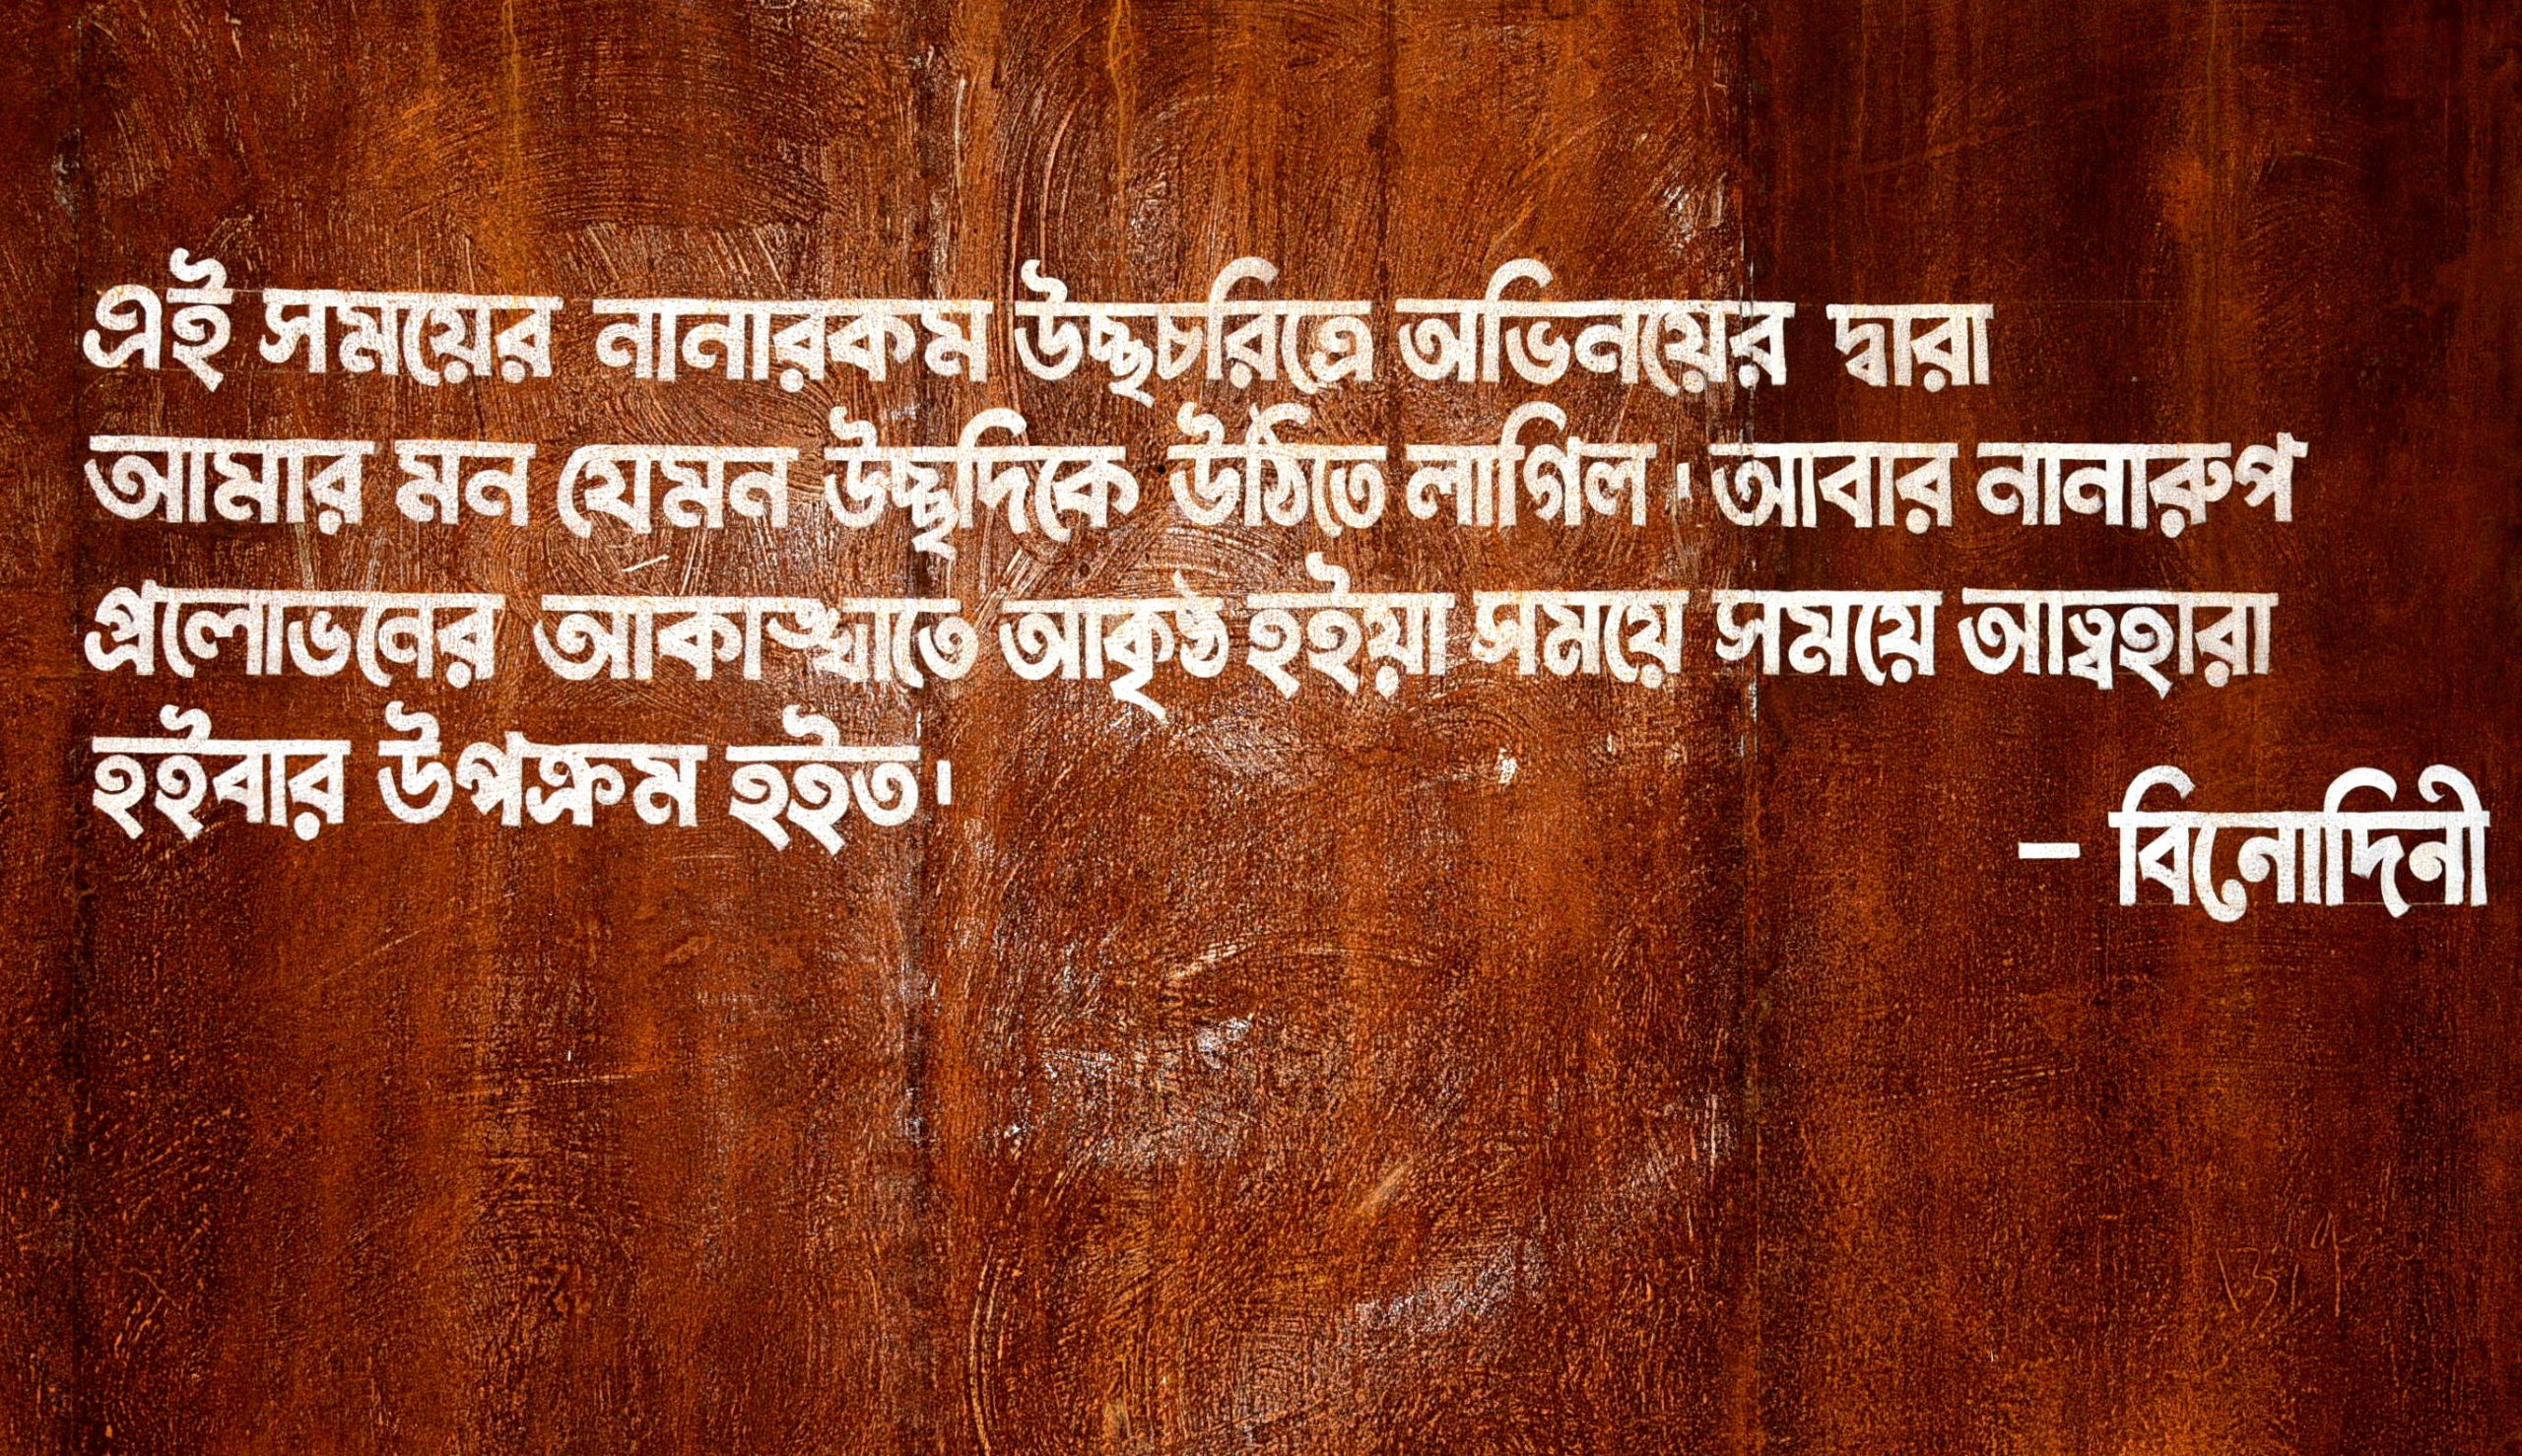 এই সময়ের নানারকম উচ্ছচরিত্রে অভিনয়ের দ্বারা
আমার মন যেমন উচ্ছদিকে উঠিতে লাগিল। আবার নানারুপ
প্রলোভনের আকাঙ্খাতে আকৃষ্ঠ হইয়া সময়ে সময়ে আত্বহারা
হইবার উপক্রম হইত।
– বিনোদিনী